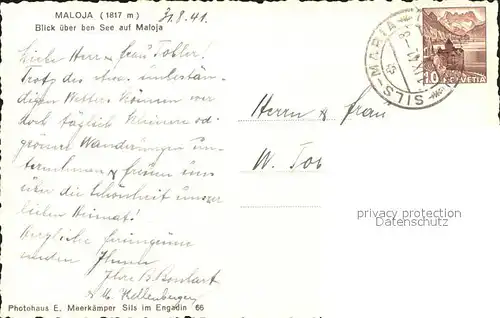 MALOJA (1817 m)
Blick über ben See auf Maloja
31.8.41.
Liebe Herr & Frau Tobler!
Trotz des etwas unbestän-
digen Wetters können wir
doch täglich kleinere od.
grössere Wanderungen un-
ternehmen & freuen uns
über die Schönheit unserer
lieben Heimat!
Herzliche
senden Ihnen
Ihre B.
& M. Kellenberger
Herrn & Frau
W. Tob
SILS-MARIA
10 HELVETIA
privacy protection
Datenschutz
Photohaus E. Meerkämper Sils im Engadin 66